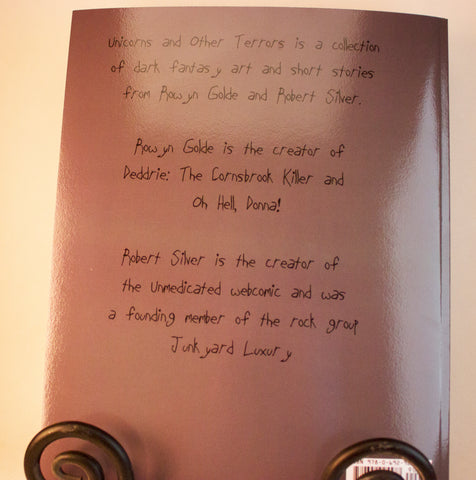 Unicorns and Other Terrors is a collection
of dark fantasy art and short stories
from Rowyn Golde and Robert Silver.
Rowyn Golde is the creator of
Deddrie: The Cornsbrook Killer and
Oh Hell, Donna!
Robert Silver is the creator of
the Unmedicated webcomic and was
a founding member of the rock group
Junkyard Luxury
978-0-692-